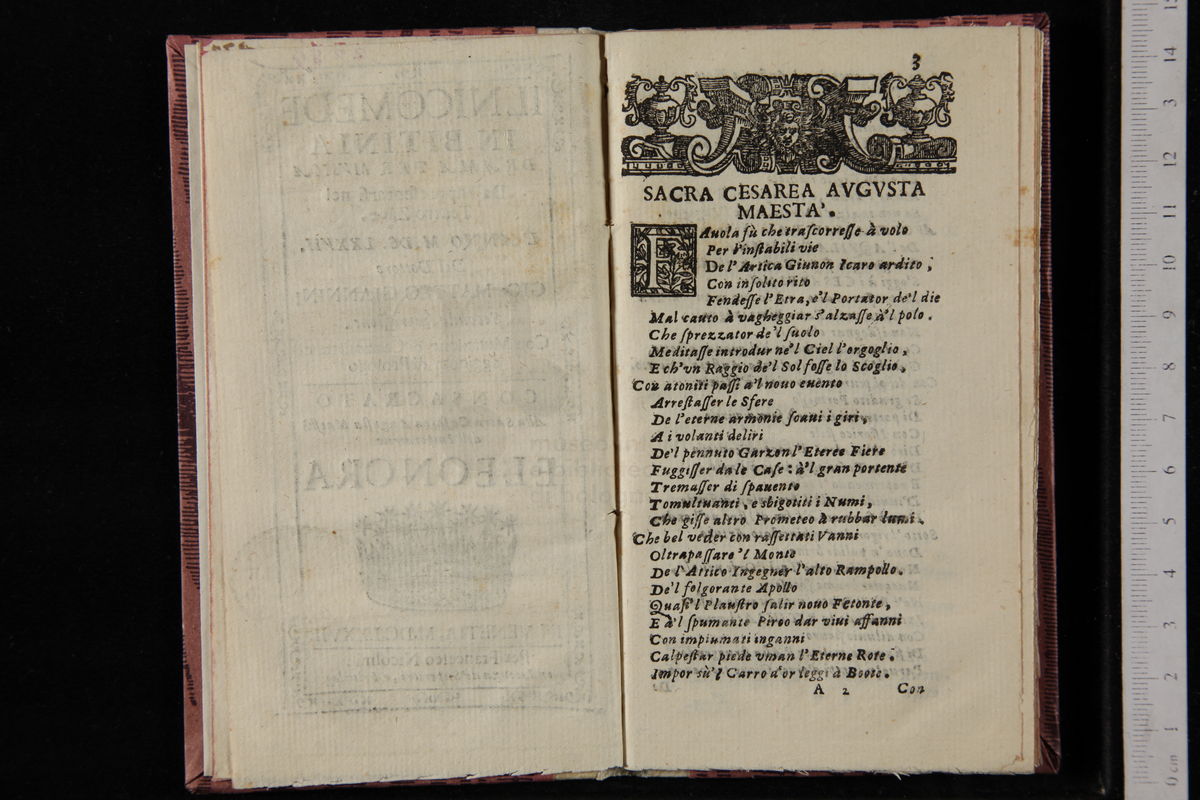 3
SACRA CESAREA AVGVSTA
MAESTA'.
FAuola fù che trascorresse à volo
Per l'instabili vie
De l'Artica Giunon Icaro ardito,
Con insolito rito
Fendesse l'Etra, e'l Portator de'l die
Mal cauto à vagheggiar s'alzasse à'l polo.
Che sprezzator de'l suolo
Meditasse introdur ne'l Ciel l'orgoglio,
E ch'vn Raggio de'l Sol fosse lo Scoglio,
Con atoniti passi a'l nouo euento
Arrestasser le Sfere
De l'eterne armonie soaui i giri,
A i volanti deliri
De'l pennuto Garzon l'Eteree Fiere
Fuggisser da le Case: à'l gran portente
Tremasser di spauento
Tomultuanti, e sbigotiti i Numi,
Che gisse altro Prometeo à rubbar lumi.
Che bel veder con rassettati Vanni
Oltrapassare 'l Monte
De l'Attico Ingegner l'alto Rampollo.
De'l folgorante Apollo
Quasi'l Plaustro salir nouo Fetonte,
E à'l spumante Piroo dar viui affanni
Con impiumati inganni
Calpestar piede vman l'Eterne Rote.
Impor sù'l Carro d'or leggi à Boote.
A 2 Con